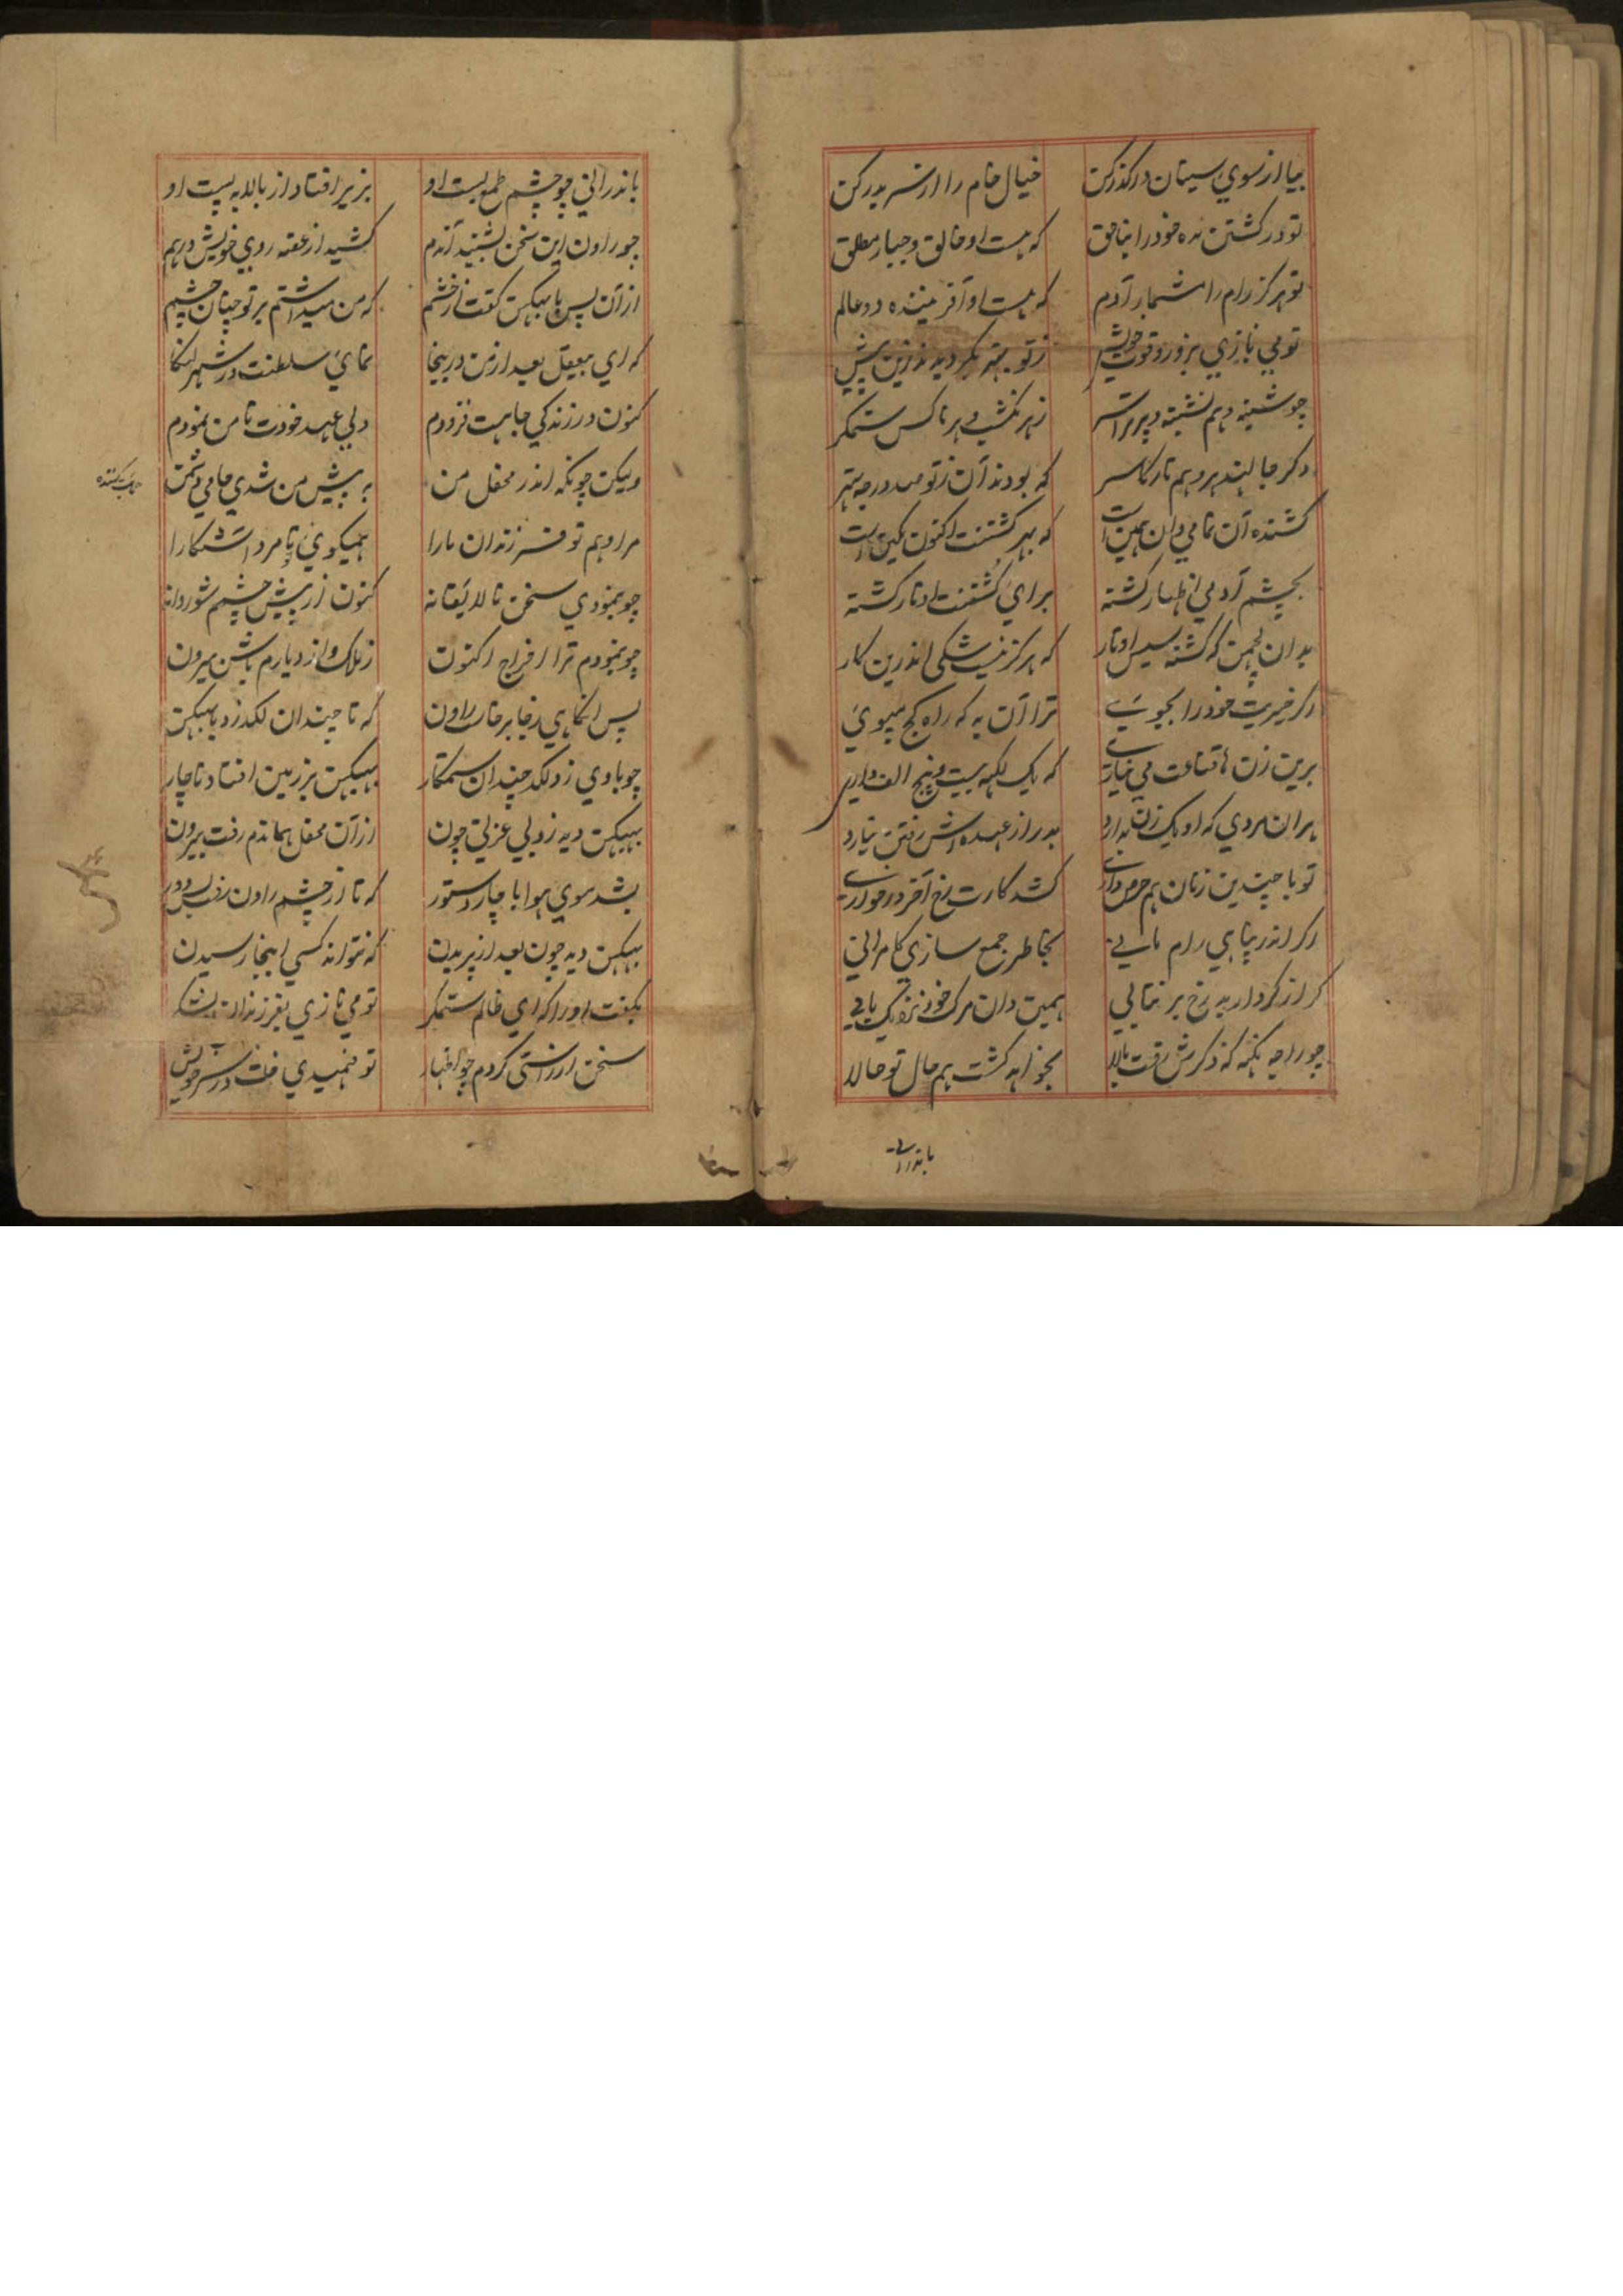 بیا از سوی سیتان درگذر کن خیال خام را از سر بدر کن
تو در کشتن مده خود را بناحق که هست او خالق و جبار مطلق
تو هرگز رام را مشمار آدم که هست او آفریننده دو عالم
تو می نازی بزور و قوت خویش ز تو بهتر بگردیدند زین پیش
ز هر کس ستمگر
که بودند آن ز تو صد درجه بهتر
کشنده آن تمامی دان همین است که بهر کشتنت اکنون کمین است
بچشم آدمی اظهار گشته برای کشتنت اوتار گشته
بدان لچمن که گشته سیس اوتار که هرگز نیست شکی اندرین کار
اگر خیریت خود را بجویی ترا آن به که راه کج مپویی
برین زن قناعت می نیاری که یک لکهه بیست و پنج الف داری
هر آن مردی که او یک زن بدارد بدر از عهده اش رفتن نیارد
تو با چندین زنان هم حرص داری کشد کارت رخ آخر در خواری
اگر اندر پناهی رام مانی بخاطر جمع سازی کامرانی
گر از کردار بد رخ بر نتابی همین دان مرگ خود نزدیک یابی
چو راجه که ذکرش رفت بالا بخواهد گشت هم حال تو حالا
باندرانی
باندرانی چو چشم طمع بست او بزیر افتاد از بالا به پست او
چو راون این سخن بشنید آندم کشید از غصه روی خویش درهم
از آن پس با بهبیکن گفت از خشم که من میداشتم بر تو چنان چشم
که ای بیعقل بعد از من درینجا نمایی سلطنت در شهر لنکا
کنون در زندگی جاهت فزودم ولی عهد خودت تا من نمودم
ولیکن چونکه اندر محفل من به پیش من شدی حامی دشمن
مرا و هم تو فرزندان ما را همیگویی تا مرد آشکارا
چو بنمودی سخن نالایقانه کنون از پیش چشمم شو روانه
چو بنمودم ترا اخراج اکنون ز ملک و از دیارم باش بیرون
پس آنگاهی ز جا برخاست راون که تا چندان لگد زد با بهبیکن
چو با وی زد لگد چندان ستمکار بهبیکن بر زمین افتاد ناچار
بهبیکن دید زو بی عزتی چون از آن محفل هماندم رفت بیرون
بشد سوی هوا با چار دستور که تا از چشم راون رفت بس دور
بهبیکن دید چون بعد از پریدن که نتواند کسی اینجا رسیدن
بگفت او را که ای ظالم ستمگر تو می نازی بفرزندان لشکر
سخن از راستی کردم چو اظهار تو فهمیدی خلاف در سر خویش